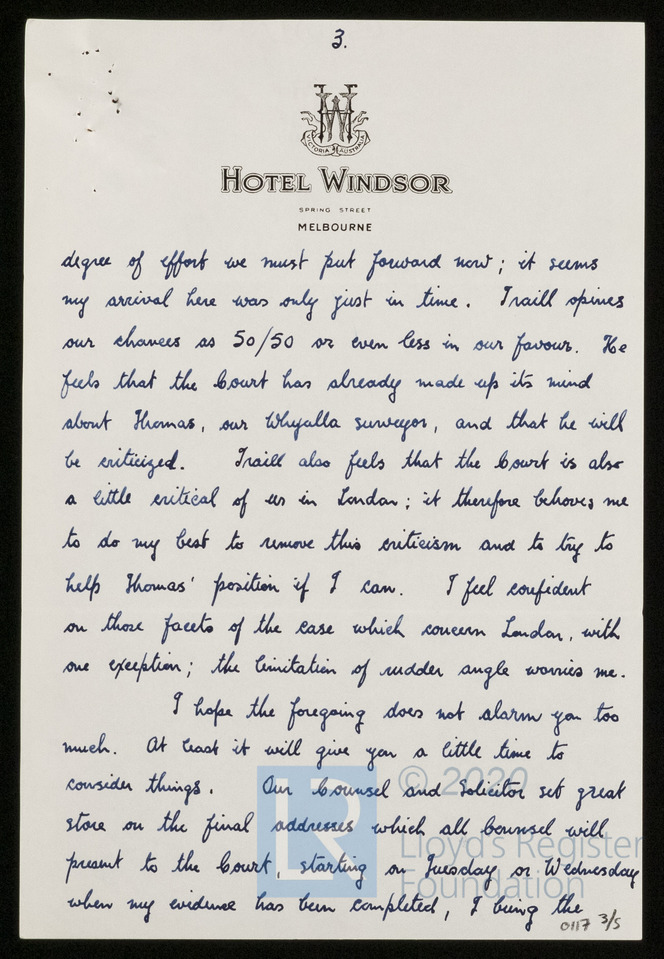 3.
W
VICTORIA AUSTRALIA
HOTEL WINDSOR
SPRING STREET
MELBOURNE
degree of effort we must put forward now; it seems
my arrival here was only just in time. Traill opines
our chances as 50/50 or even less in our favour. He
feels that the Court has already made up its mind
about Thomas, our Whyalla surveyor, and that he will
be criticized. Traill also feels that the Court is also
a little critical of us in London; it therefore behoves me
to do my best to remove this criticism and to try to
help Thomas' position if I can. I feel confident
on those facets of the case which concern London, with
one exception; the limitation of rudder angle worries me.
I hope the foregoing does not alarm you too
much. At least it will give you a little time to
consider things. Our Counsel and Solicitor set great
store on the final addresses which all Counsel will
present to the Court, starting on Tuesday or Wednesday
when my evidence has been completed, I being the
0117 3/5
LR
© 2020
Lloyd's Register
Foundation